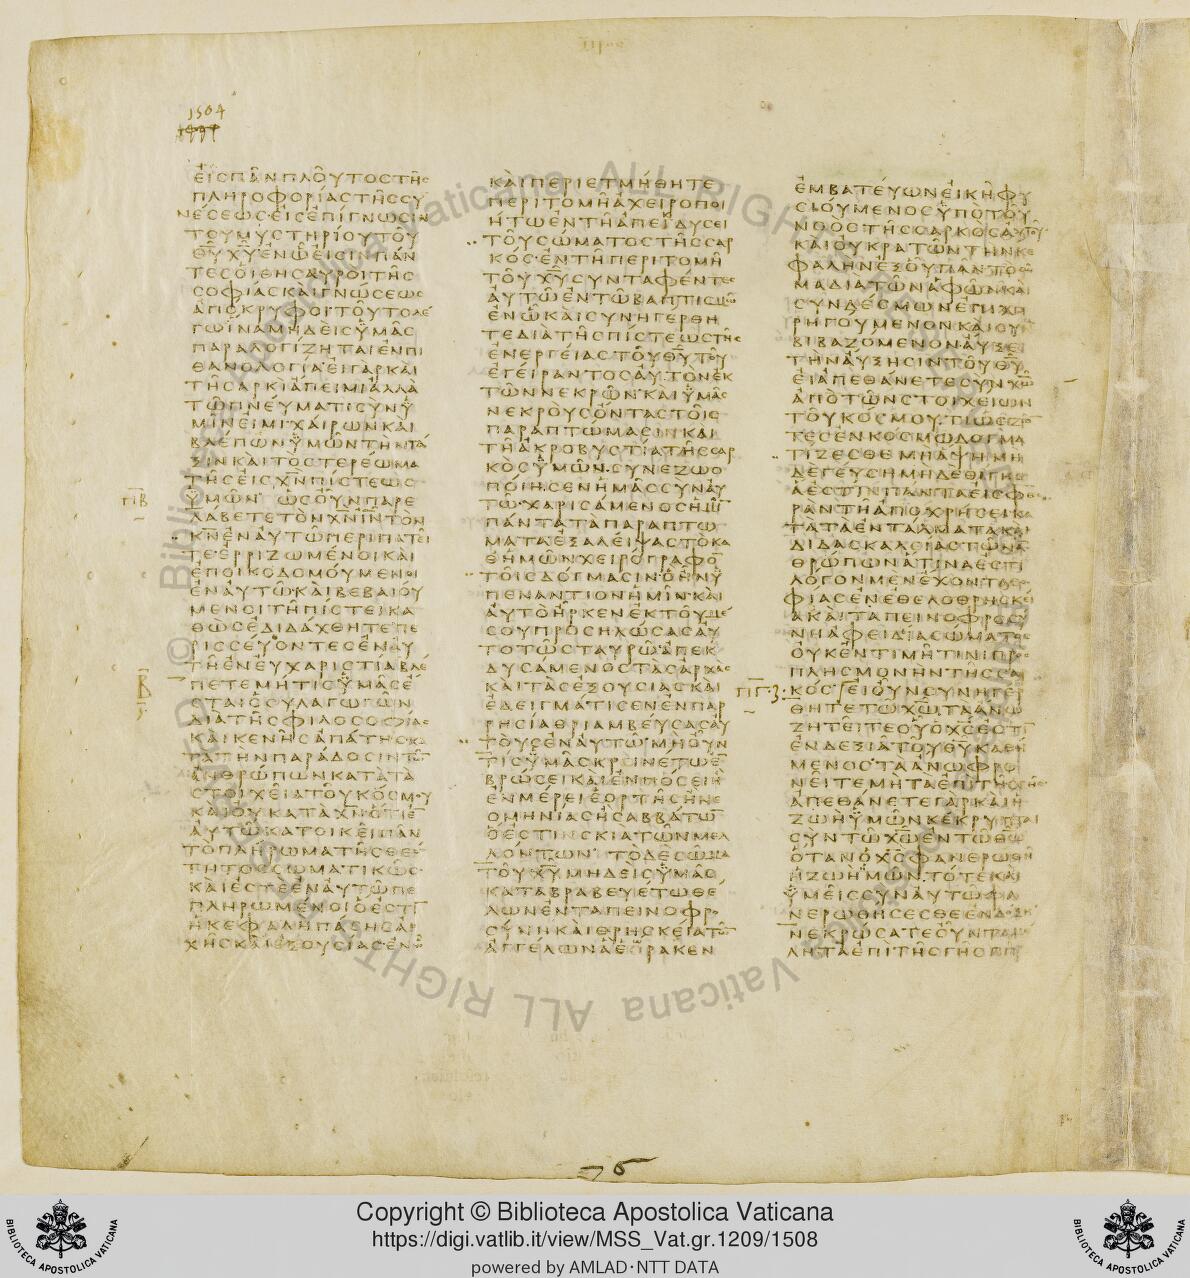 1504
ΕΙϹΠΑΝΠΛΟΥΤΟϹΤΗϹ
ΠΛΗΡΟΦΟΡΙΑϹΤΗϹϹΥ
ΝΕϹΕΩϹΕΙϹΕΠΙΓΝΩϹΙΝ
ΤΟΥΜΥϹΤΗΡΙΟΥΤΟΥ
ΘΥΧΥΕΝΩΕΙϹΙΝΠΑΝ
ΤΕϹΟΙΘΗϹΑΥΡΟΙΤΗϹ
ϹΟΦΙΑϹΚΑΙΓΝΩϹΕΩϹ
ΑΠΟΚΡΥΦΟΙ·ΤΟΥΤΟΛΕ
ΓΩΙΝΑΜΗΔΕΙϹΥΜΑϹ
ΠΑΡΑΛΟΓΙΖΗΤΑΙΕΝΠΙ
ΘΑΝΟΛΟΓΙΑ·ΕΙΓΑΡΚΑΙ
ΤΗϹΑΡΚΙΑΠΕΙΜΙΑΛΛΑ
ΤΩΠΝΕΥΜΑΤΙϹΥΝΥ
ΜΙΝΕΙΜΙ·ΧΑΙΡΩΝΚΑΙ
ΒΛΕΠΩΝΥΜΩΝΤΗΝΤΑ
ΞΙΝΚΑΙΤΟϹΤΕΡΕΩΜΑ
ΤΗϹΕΙϹΧΝΠΙϹΤΕΩϹ
ΥΜΩΝ· ΩϹΟΥΝΠΑΡΕ
ΛΑΒΕΤΕΤΟΝΧΝΙΝΤΟΝ
ΚΝΕΝΑΥΤΩΠΕΡΙΠΑΤΕΙ
ΤΕΕΡΡΙΖΩΜΕΝΟΙΚΑΙ
ΕΠΟΙΚΟΔΟΜΟΥΜΕΝΟΙ
ΕΝΑΥΤΩ·ΚΑΙΒΕΒΑΙΟΥ
ΜΕΝΟΙΤΗΠΙϹΤΕΙΚΑ
ΘΩϹΕΔΙΔΑΧΘΗΤΕΠΕ
ΡΙϹϹΕΥΟΝΤΕϹΕΝΑΥ
ΤΗΕΝΕΥΧΑΡΙϹΤΙΑΒΛΕ
ΠΕΤΕΜΗΤΙϹΥΜΑϹΕ
ϹΤΑΙΟϹΥΛΑΓΩΓΩΝ
ΔΙΑΤΗϹΦΙΛΟϹΟΦΙΑϹ
ΚΑΙΚΕΝΗϹΑΠΑΤΗϹΚΑ
ΤΑΤΗΝΠΑΡΑΔΟϹΙΝΤΩ
ΑΝΘΡΩΠΩΝΚΑΤΑΤΑ
ϹΤΟΙΧΕΙΑΤΟΥΚΟϹΜΟΥ
ΚΑΙΟΥΚΑΤΑΧΝΟΤΙΕ
ΑΥΤΩΚΑΤΟΙΚΕΙΠΑΝ
ΤΟΠΛΗΡΩΜΑΤΗϹΘΕΟ
ΤΗΤΟϹϹΩΜΑΤΙΚΩϹ
ΚΑΙΕϹΤΕΕΝΑΥΤΩΠΕ
ΠΛΗΡΩΜΕΝΟΙΟΕϹΤΙ
ΗΚΕΦΑΛΗΠΑϹΗϹΑΡ
ΧΗϹΚΑΙΕΞΟΥϹΙΑϹΕΝΩ
ΚΑΙΠΕΡΙΕΤΜΗΘΗΤΕ
ΠΕΡΙΤΟΜΗΑΧΕΙΡΟΠΟΙ
ΗΤΩΕΝΤΗΑΠΕΚΔΥϹΕΙ
ΤΟΥϹΩΜΑΤΟϹΤΗϹϹΑΡ
ΚΟϹ·ΕΝΤΗΠΕΡΙΤΟΜΗ
ΤΟΥΧΥϹΥΝΤΑΦΕΝΤΕϹ
ΑΥΤΩΕΝΤΩΒΑΠΤΙϹΜΩ
ΕΝΩΚΑΙϹΥΝΗΓΕΡΘΗ
ΤΕΔΙΑΤΗϹΠΙϹΤΕΩϹΤΗϹ
ΕΝΕΡΓΕΙΑϹΤΟΥΘΥΤΟΥ
ΕΓΕΙΡΑΝΤΟϹΑΥΤΟΝΕΚ
ΤΩΝΝΕΚΡΩΝ·ΚΑΙΥΜΑϹ
ΝΕΚΡΟΥϹΟΝΤΑϹΤΟΙϹ
ΠΑΡΑΠΤΩΜΑϹΙΝΚΑΙ
ΤΗΑΚΡΟΒΥϹΤΙΑΤΗϹϹΑΡ
ΚΟϹΥΜΩΝ·ϹΥΝΕΖΩΟ
ΠΟΙΗϹΕΝΗΜΑϹϹΥΝΑΥ
ΤΩ·ΧΑΡΙϹΑΜΕΝΟϹΗΜΙ
ΠΑΝΤΑΤΑΠΑΡΑΠΤΩ
ΜΑΤΑ·ΕΞΑΛΕΙΨΑϹΤΟΚΑ
ΘΗΜΩΝΧΕΙΡΟΓΡΑΦΟ
ΤΟΙϹΔΟΓΜΑϹΙΝ·ΟΗΝΥ
ΠΕΝΑΝΤΙΟΝΗΜΙΝ·ΚΑΙ
ΑΥΤΟΗΡΚΕΝΕΚΤΟΥΜΕ
ϹΟΥΠΡΟϹΗΛΩϹΑϹΑΥ
ΤΟΤΩϹΤΑΥΡΩ·ΑΠΕΚ
ΔΥϹΑΜΕΝΟϹΤΑϹΑΡΧΑϹ
ΚΑΙΤΑϹΕΞΟΥϹΙΑϹΚΑΙ
ΕΔΕΙΓΜΑΤΙϹΕΝΕΝΠΑΡ
ΡΗϹΙΑΘΡΙΑΜΒΕΥϹΑϹΑΥ
ΤΟΥϹΕΝΑΥΤΩ·ΜΗΟΥΝ
ΤΙϹΥΜΑϹΚΡΙΝΕΤΩΕ
ΒΡΩϹΕΙΚΑΙΕΝΠΟϹΕΙΗ
ΕΝΜΕΡΕΙΕΟΡΤΗϹΗΝΕ
ΟΜΗΝΙΑϹΗϹΑΒΒΑΤΩ
ΟΕϹΤΙΝϹΚΙΑΤΩΝΜΕΛ
ΛΟΝΤΩΝ· ΤΟΔΕϹΩΜΑ
ΤΟΥΧΥΜΗΔΕΙϹΥΜΑϹ
ΚΑΤΑΒΡΑΒΕΥΕΤΩΘΕ
ΛΩΝΕΝΤΑΠΕΙΝΟΦΡΟ
ϹΥΝΗΚΑΙΘΡΗϹΚΕΙΑΤΩ
ΑΓΓΕΛΩΝΑΕΟΡΑΚΕΝ
ΕΜΒΑΤΕΥΩΝΕΙΚΗΦΥ
ϹΙΟΥΜΕΝΟϹΥΠΟΤΟΥ
ΝΟΟϹΤΗϹϹΑΡΚΟϹΑΥΤΟΥ
ΚΑΙΟΥΚΡΑΤΩΝΤΗΝΚΕ
ΦΑΛΗΝΕΞΟΥΠΑΝΤΟϹΩ
ΜΑΔΙΑΤΩΝΑΦΩΝΚΑΙ
ϹΥΝΔΕϹΜΩΝΕΠΙΧΟ
ΡΗΓΟΥΜΕΝΟΝΚΑΙϹΥ
ΒΙΒΑΖΟΜΕΝΟΝΑΥΞΕΙ
ΤΗΝΑΥΞΗϹΙΝΤΟΥΘΥ
ΕΙΑΠΕΘΑΝΕΤΕϹΥΝΧΩ
ΑΠΟΤΩΝϹΤΟΙΧΕΙΩΝ
ΤΟΥΚΟϹΜΟΥ·ΤΙΩϹΖΩ
ΤΕϹΕΝΚΟϹΜΩΔΟΓΜΑ
ΤΙΖΕϹΘΕΜΗΑΨΗΜΗ
ΔΕΓΕΥϹΗΜΗΔΕΘΙΓΗϹ
ΑΕϹΤΙΝΠΑΝΤΑΕΙϹΦΘΟ
ΡΑΝΤΗΑΠΟΧΡΗϹΕΙΚΑ
ΤΑΤΑΕΝΤΑΛΜΑΤΑΚΑΙ
ΔΙΔΑϹΚΑΛΙΑϹΤΩΝΑ
ΘΡΩΠΩΝΑΤΙΝΑΕϹΤΙ
ΛΟΓΟΝΜΕΝΕΧΟΝΤΑϹΟ
ΦΙΑϹΕΝΕΘΕΛΟΘΡΗϹΚΕΙ
ΑΚΑΙΤΑΠΕΙΝΟΦΡΟϹΥ
ΝΗΑΦΕΙΔΙΑϹΩΜΑΤΟϹ
ΟΥΚΕΝΤΙΜΗΤΙΝΙΠΡΟϹ
ΠΛΗϹΜΟΝΗΝΤΗϹϹΑΡ
ΚΟϹ·ΕΙΟΥΝϹΥΝΗΓΕΡ
ΘΗΤΕΤΩΧΩΤΑΑΝΩ
ΖΗΤΕΙΤΕΟΥΟΧϹΕϹΤΙ
ΕΝΔΕΞΙΑΤΟΥΘΥΚΑΘΗ
ΜΕΝΟϹ·ΤΑΑΝΩΦΡΟ
ΝΕΙΤΕΜΗΤΑΕΠΙΤΗϹΓΗϹ
ΑΠΕΘΑΝΕΤΕΓΑΡΚΑΙΗ
ΖΩΗΥΜΩΝΚΕΚΡΥΠΤΑΙ
ϹΥΝΤΩΧΩΕΝΤΩΘΩ
ΟΤΑΝΟΧϹΦΑΝΕΡΩΘΗ
ΗΖΩΗΗΜΩΝ·ΤΟΤΕΚΑΙ
ΥΜΕΙϹϹΥΝΑΥΤΩΦΑ
ΝΕΡΩΘΗϹΕϹΘΕΕΝΔΟΞΗ
ΝΕΚΡΩϹΑΤΕΟΥΝΤΑΜΕ
ΛΗΤΑΕΠΙΤΗϹΓΗϹΠΟΡ
BIBLIOTECA APOSTOLICA VATICANA
Copyright © Biblioteca Apostolica Vaticana
https://digi.vatlib.it/view/MSS_Vat.gr.1209/1508
powered by AMLAD·NTT DATA
BIBLIOTECA APOSTOLICA VATICANA